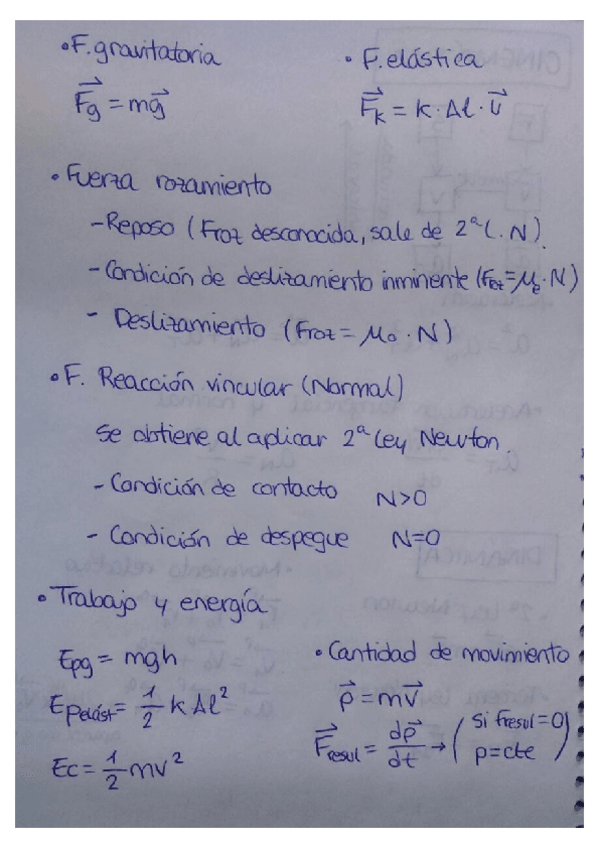 • F. gravitatoria
F⃗g = mg⃗
• F. elástica
F⃗k = k · Δl · u⃗
• Fuerza rozamiento
- Reposo (Froz desconocida, sale de 2ª L. N)
- Condición de deslizamiento inminente (Froz = μe · N)
- Deslizamiento (Froz = μo · N)
• F. Reacción vincular (Normal)
Se obtiene al aplicar 2ª Ley Newton
- Condición de contacto N>0
- Condición de despegue N=0
• Trabajo y energía
Epg = mgh
Epelást = 1/2 k Δl²
Ec = 1/2 mv²
• Cantidad de movimiento
p⃗ = mv⃗
F⃗resul = dp⃗/dt → (Si Fresul = 0
p = cte)